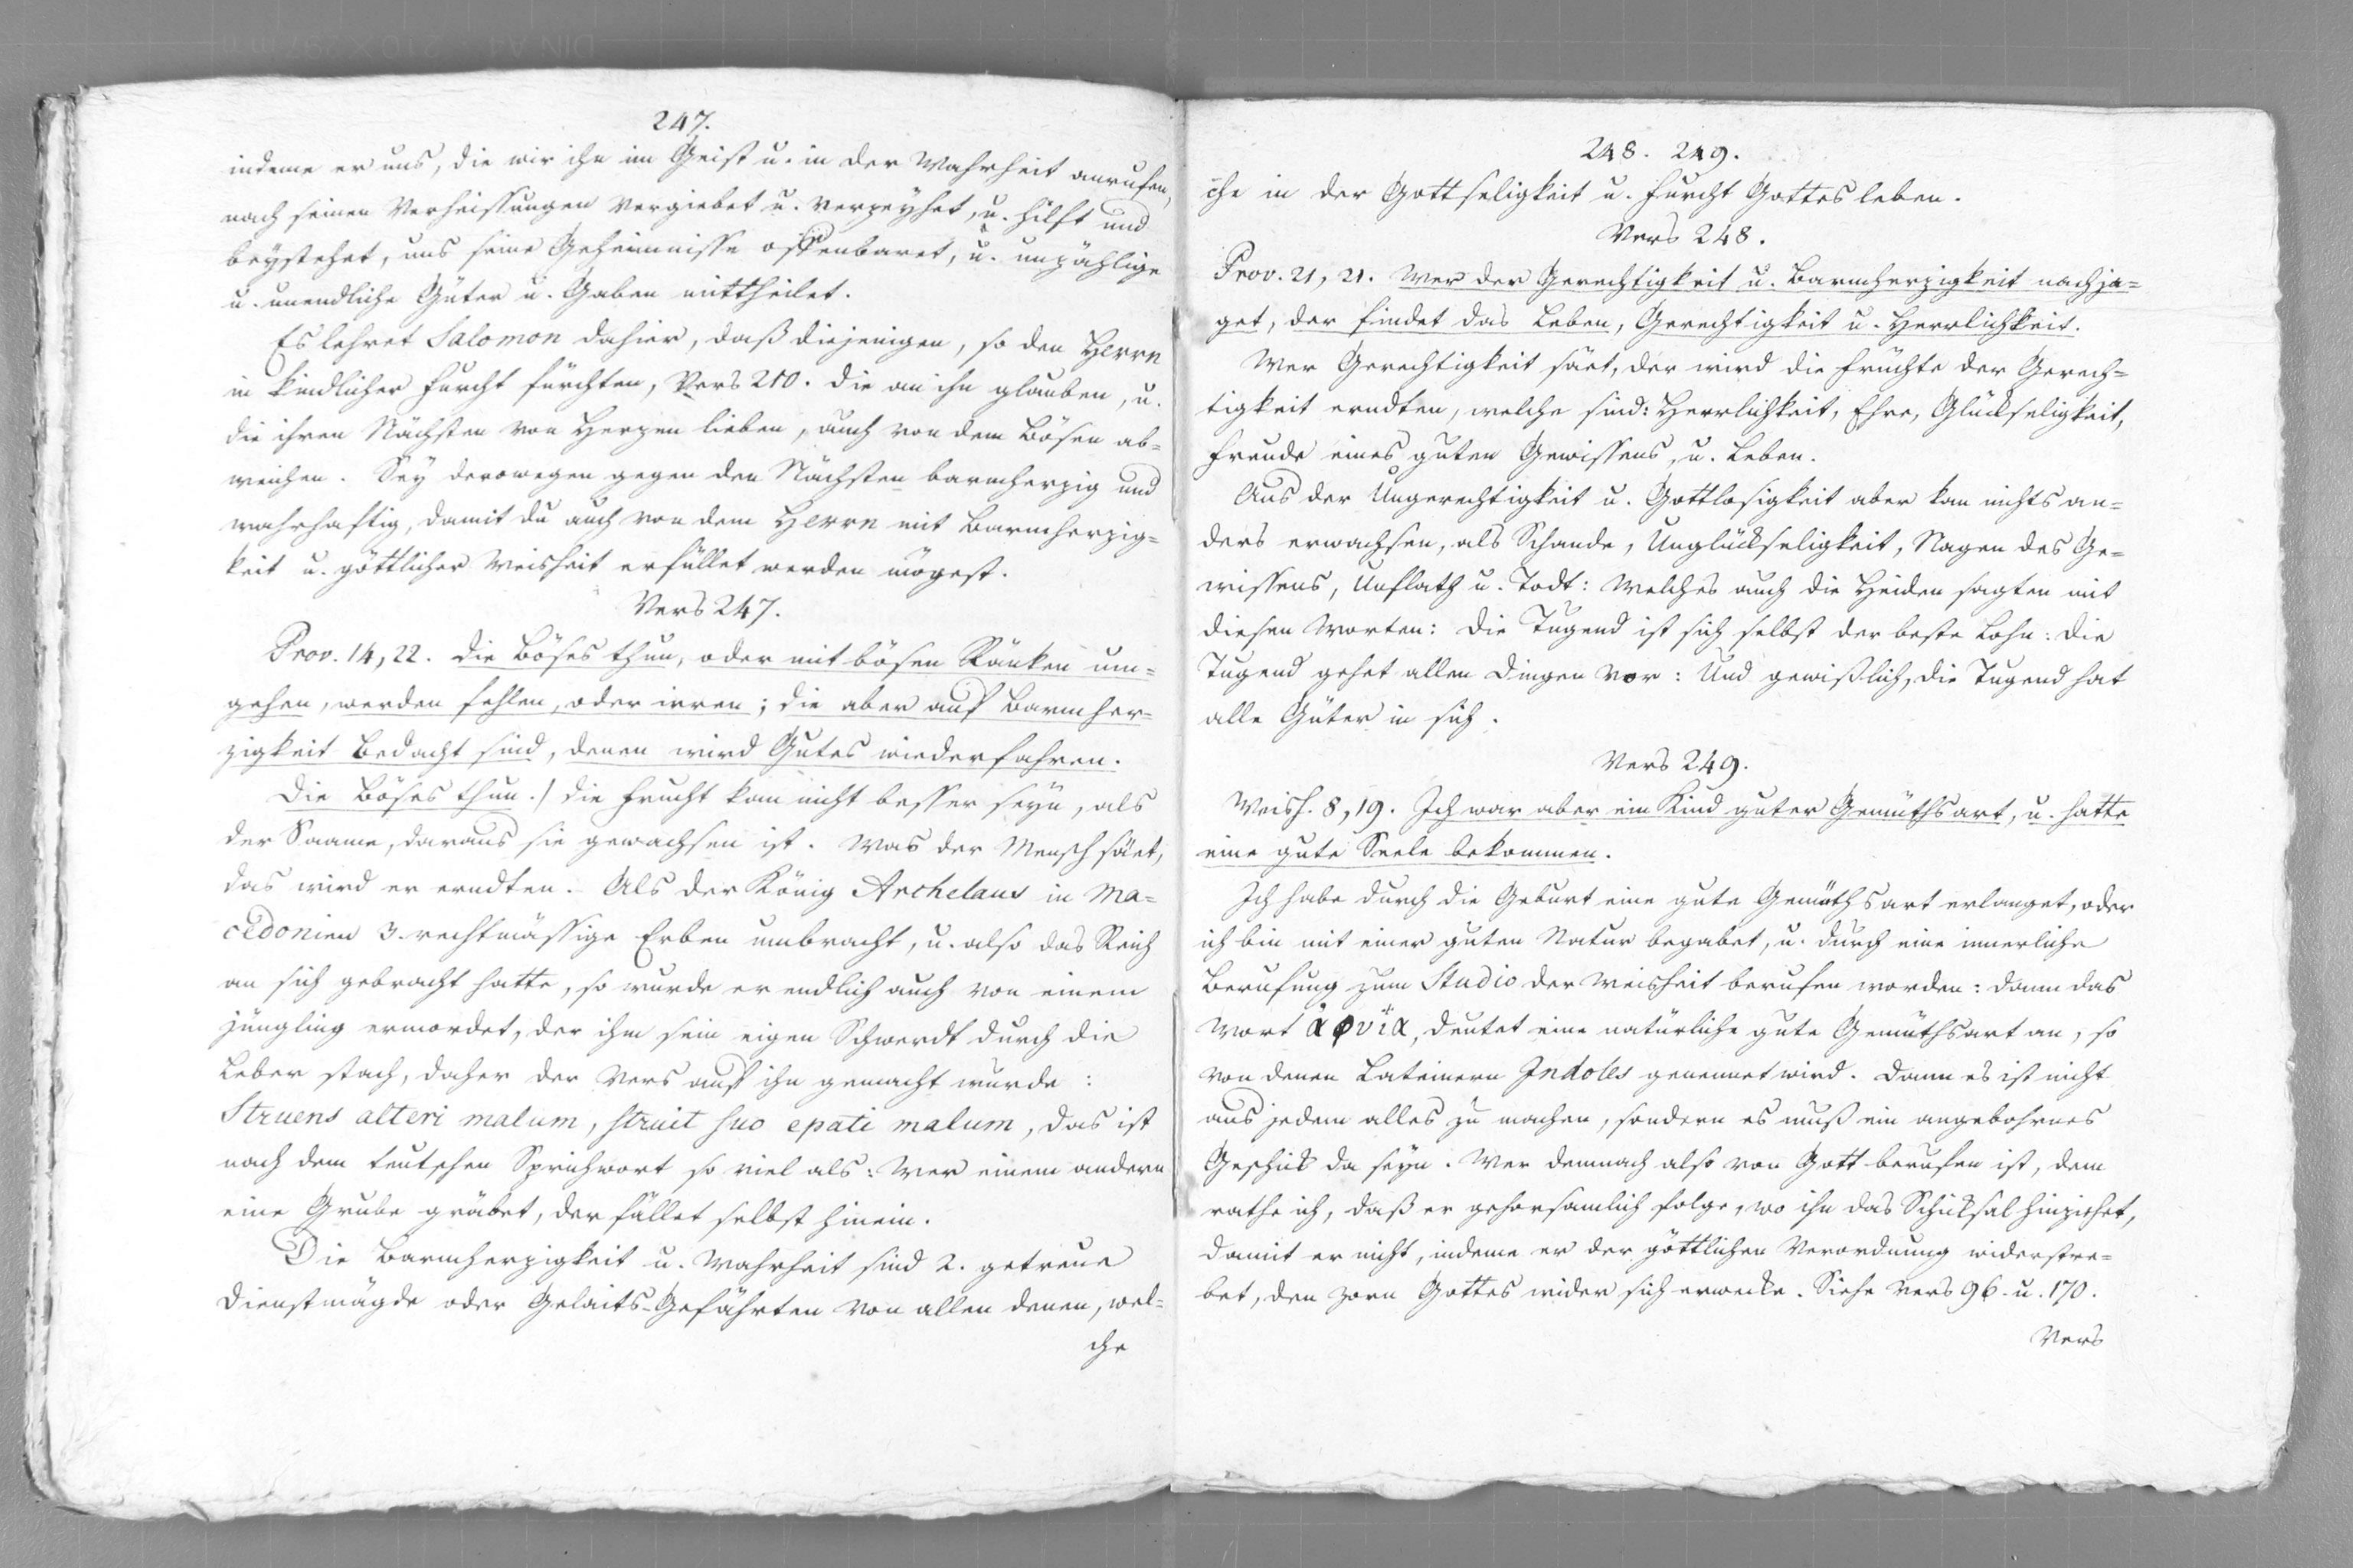 247.
indeme er uns, die wir ihn im Geist u. in der Wahrheit anrufen,
nach seinen Verheissungen vergiebet u. verzeyhet, u. hilft und
beystehet, uns seine Geheimnisse offenbaret, u. unzählige
u. unendliche Güter u. Gaben mittheilet.
Es lehret Salomon dahier, daß diejenigen, so den Herrn
in kindlicher Furcht fürchten, Vers 210. die an ihn glauben, u.
die ihren Nächsten von Herzen lieben, auch von dem Bösen ab=
weichen. Sey derowegen gegen den Nächsten barmherzig und
wahrhaftig, damit du auch von dem Herrn mit Barmherzig=
keit u. göttlicher Weisheit erfüllet werden mögest.
Vers 247.
Prov. 14, 22. Die Böses thun, oder mit bösen Ränken um=
gehen, werden fehlen, oder irren; die aber auf Barmher=
zigkeit bedacht sind, denen wird Gutes wiederfahren.
Die Böses thun.) Die Frucht kan nicht besser seyn, als
der Saame, daraus sie gewachsen ist. Was der Mensch säet,
das wird er erndten. Als der König Archelaus in Ma=
cedonien 3. rechtmässige Erben umbracht, u. also das Reich
an sich gebracht hatte, so wurde er endlich auch von einem
Jüngling ermordet, der ihm sein eigen Schwerdt durch die
Leber stach, daher der Vers auf ihn gemacht wurde:
Struens alteri malum, struit suo epati malum, das ist
nach dem teutschen Sprichwort so viel als: Wer einem andern
eine Grube gräbet, der fället selbst hinein.
Die Barmherzigkeit u. Wahrheit sind 2. getreue
Dienstmägde oder Gelaits-Gefährten von allen denen, wel=
che
248. 249.
che in der Gottseligkeit u. Furcht Gottes leben.
Vers 248.
Prov. 21, 21. Wer der Gerechtigkeit u. Barmherzigkeit nachja=
get, der findet das Leben, Gerechtigkeit u. Herrlichkeit.
Wer Gerechtigkeit säet, der wird die Früchte der Gerech=
tigkeit erndten, welche sind: Herrlichkeit, Ehre, Glückseligkeit,
Freude eines guten Gewissens, u. Leben.
Aus der Ungerechtigkeit u. Gottlosigkeit aber kan nichts an=
ders erwachsen, als Schande, Unglückseligkeit, Nagen des Ge=
wissens, Unflath u. Todt: Welches auch die Heiden sagten mit
diesen Worten: Die Tugend ist sich selbst der beste Lohn: Die
Tugend gehet allen Dingen vor: Und gewißlich, die Tugend hat
alle Güter in sich.
Vers 249.
Weish. 8, 19. Ich war aber ein Kind guter Gemüthsart, u. hatte
eine gute Seele bekommen.
Ich habe durch die Geburt eine gute Gemüthsart erlanget, oder
ich bin mit einer guten Natur begabet, u. durch eine innerliche
Berufung zum Studio der Weisheit berufen worden: Dann das
Wort ἀφυΐα, deutet eine natürliche gute Gemüthsart an, so
von denen Lateinern Indoles genennet wird. Dann es ist nicht
aus jedem alles zu machen, sondern es muß ein angebohrnes
Geschick da seyn. Wer demnach also von Gott berufen ist, dem
rathe ich, daß er gehorsamlich folge, wo ihn das Schicksal hinziehet,
damit er nicht, indeme er der göttlichen Verordnung widerstre=
bet, den Zorn Gottes wider sich erwecke. Siehe Vers 96. u. 170.
Vers